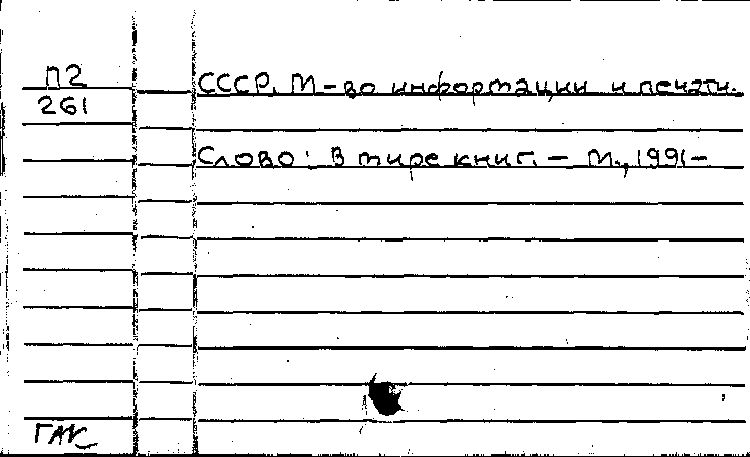 П2
261
СССР. М-во информации и печати.
Слово: В мире книг. — М., 1991–
ГАК